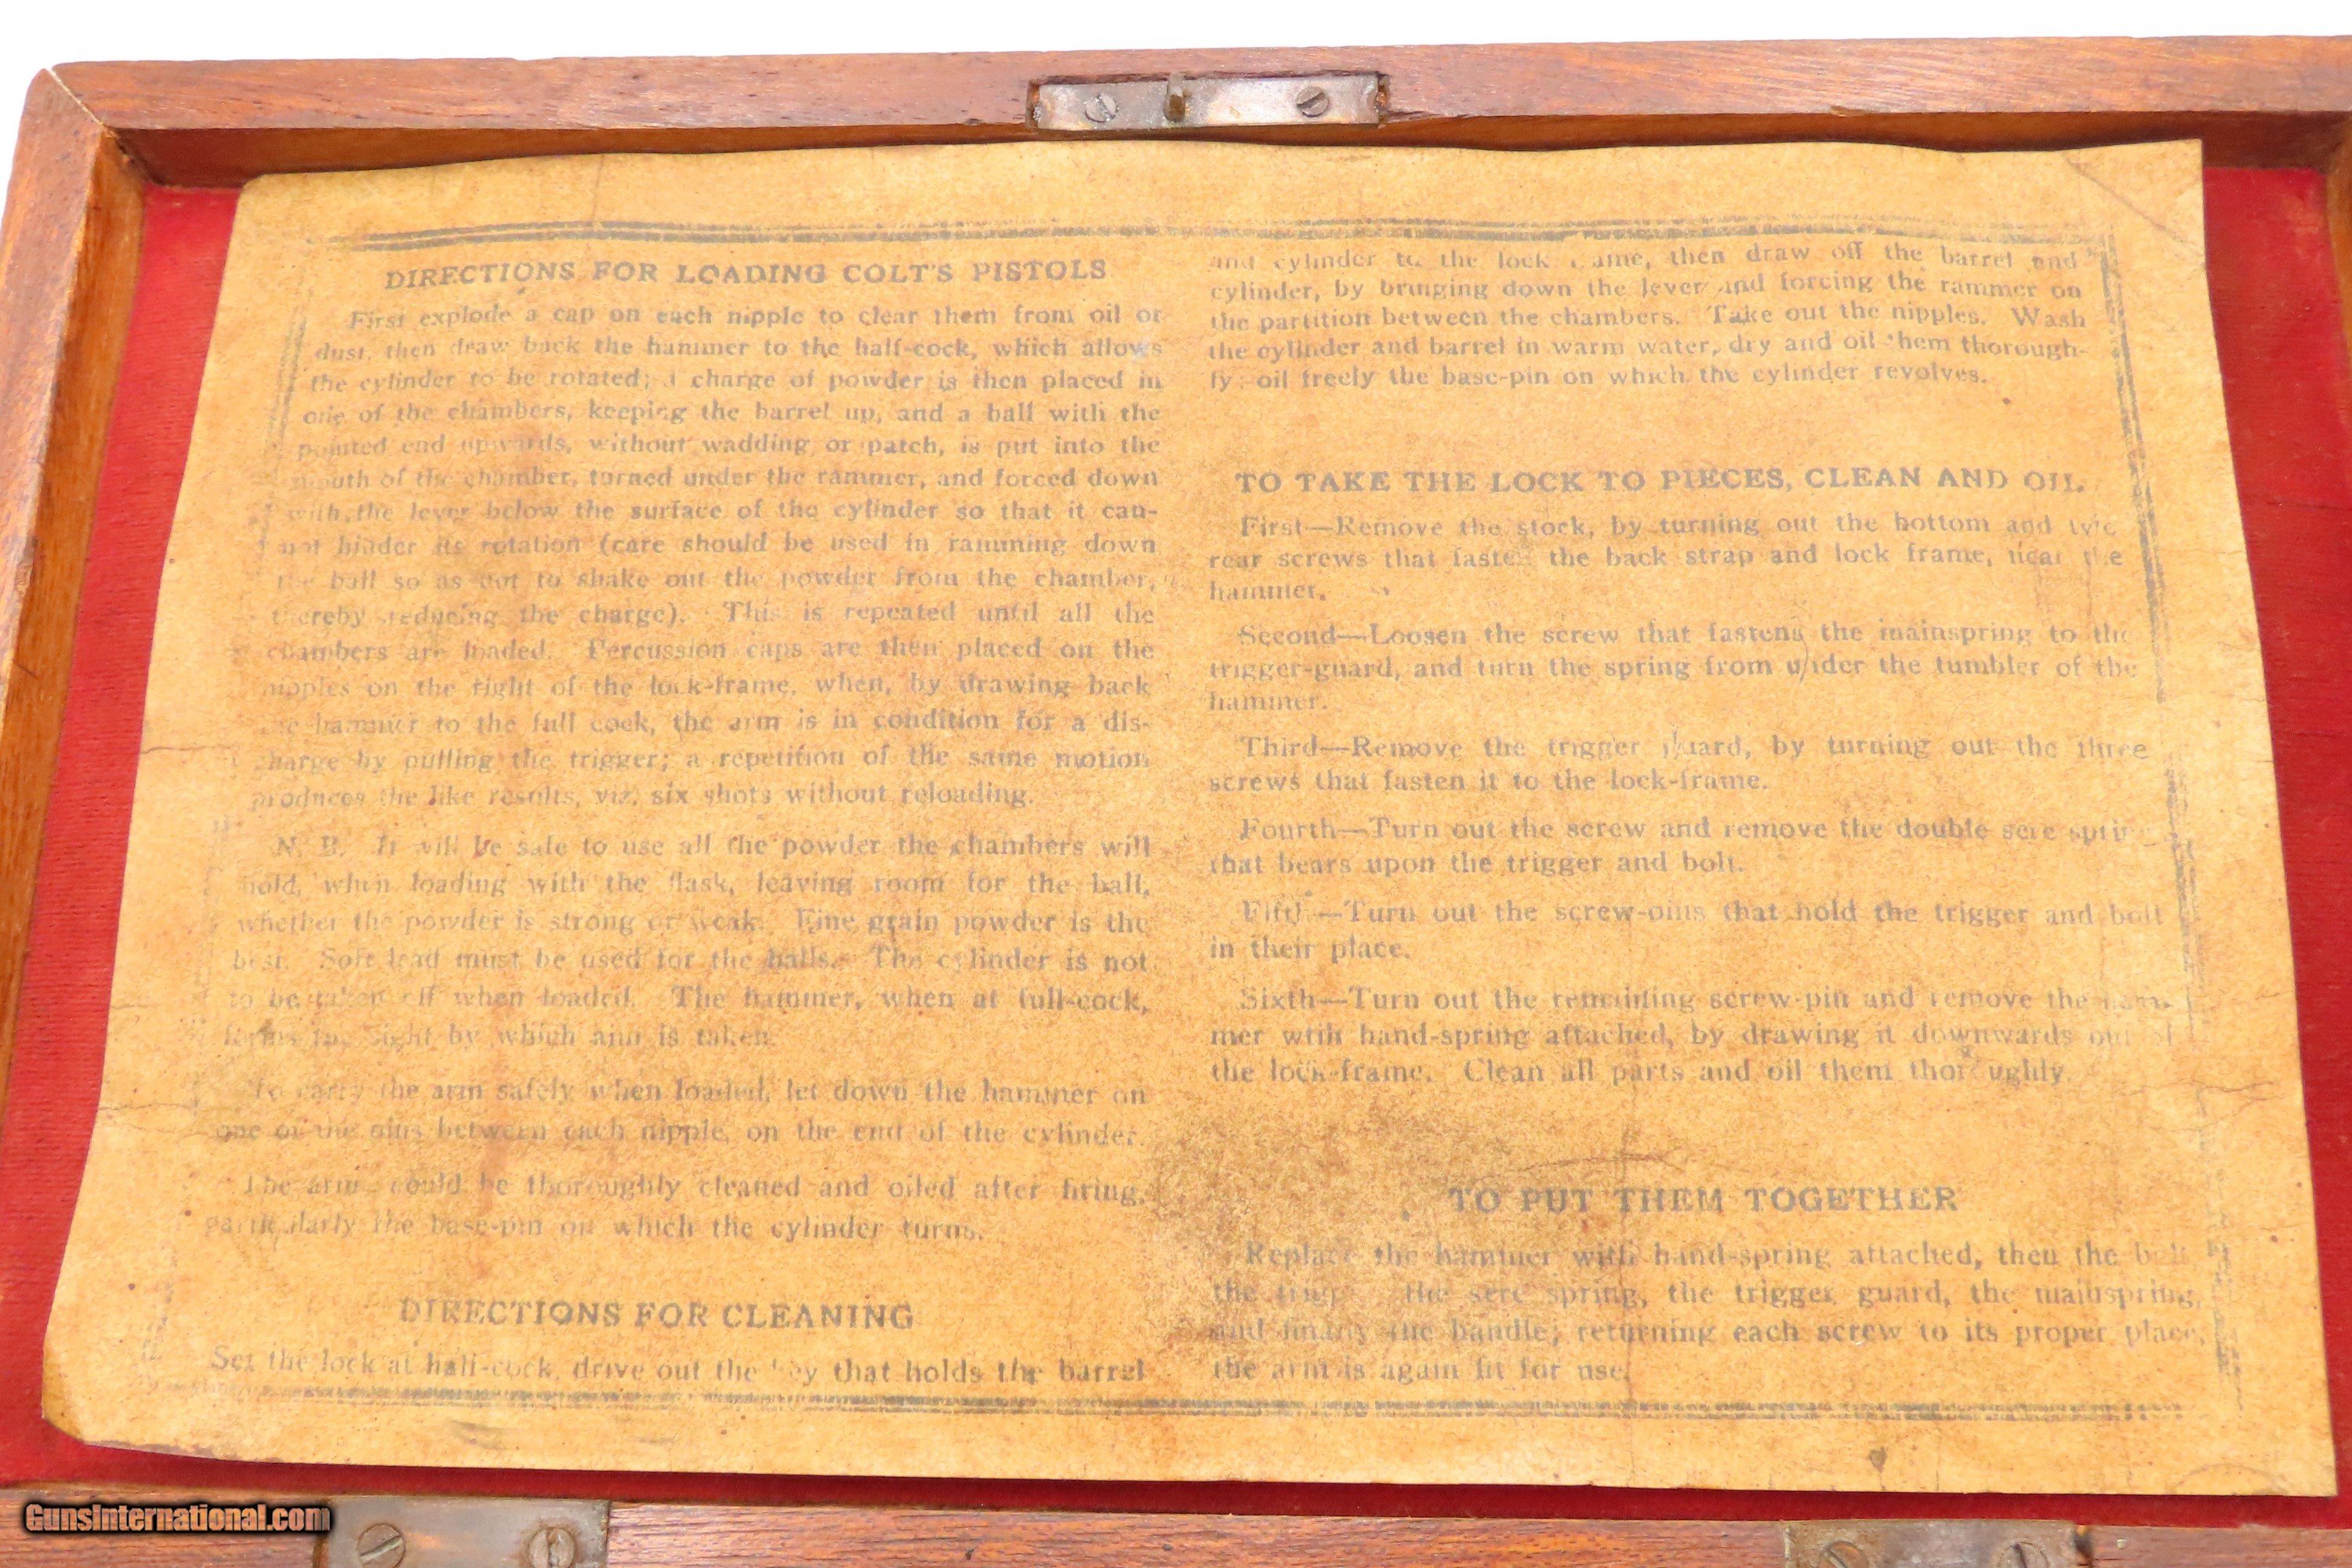 DIRECTIONS FOR LOADING COLT'S PISTOLS
First explode a cap on each nipple to clear them from oil or
dust, then draw back the hammer to the half-cock, which allows
the cylinder to be rotated; a charge of powder is then placed in
one of the chambers, keeping the barrel up, and a ball with the
pointed end upwards, without wadding or patch, is put into the
mouth of the chamber, turned under the rammer, and forced down
with the lever below the surface of the cylinder so that it can-
not hinder its rotation (care should be used in ramming down
the ball so as not to shake out the powder from the chamber,
thereby reducing the charge). This is repeated until all the
chambers are loaded. Percussion caps are then placed on the
nipples on the right of the lock-frame, when, by drawing back
the hammer to the full cock, the arm is in condition for a dis-
charge by pulling the trigger; a repetition of the same motion
produces the like results, viz. six shots without reloading.
N. B. It will be safe to use all the powder the chambers will
hold, when loading with the flask, leaving room for the ball,
whether the powder is strong or weak. Fine grain powder is the
best. Soft lead must be used for the balls. The cylinder is not
to be taken off when loaded. The hammer, when at full-cock,
forms the sight by which aim is taken.
To carry the arm safely when loaded, let down the hammer on
one of the pins between each nipple, on the end of the cylinder.
The arm should be thoroughly cleaned and oiled after firing,
particularly the base-pin on which the cylinder turns.
DIRECTIONS FOR CLEANING
Set the lock at half-cock, drive out the key that holds the barrel
and cylinder to the lock frame, then draw off the barrel and
cylinder, by bringing down the lever and forcing the rammer on
the partition between the chambers. Take out the nipples. Wash
the cylinder and barrel in warm water, dry and oil them thorough-
ly; oil freely the base-pin on which the cylinder revolves.
TO TAKE THE LOCK TO PIECES, CLEAN AND OIL.
First—Remove the stock, by turning out the bottom and two
rear screws that fasten the back strap and lock frame, near the
hammer.
Second—Loosen the screw that fastens the mainspring to the
trigger-guard, and turn the spring from under the tumbler of the
hammer.
Third—Remove the trigger guard, by turning out the three
screws that fasten it to the lock-frame.
Fourth—Turn out the screw and remove the double sere spring
that bears upon the trigger and bolt.
Fifth—Turn out the screw-pins that hold the trigger and bolt
in their place.
Sixth—Turn out the remaining screw-pin and remove the ham-
mer with hand-spring attached, by drawing it downwards out of
the lock-frame. Clean all parts and oil them thoroughly.
TO PUT THEM TOGETHER
Replace the hammer with hand-spring attached, then the bolt,
the trigger, the sere spring, the trigger guard, the mainspring,
and finally the handle; returning each screw to its proper place,
the arm is again fit for use.
GunsInternational.com